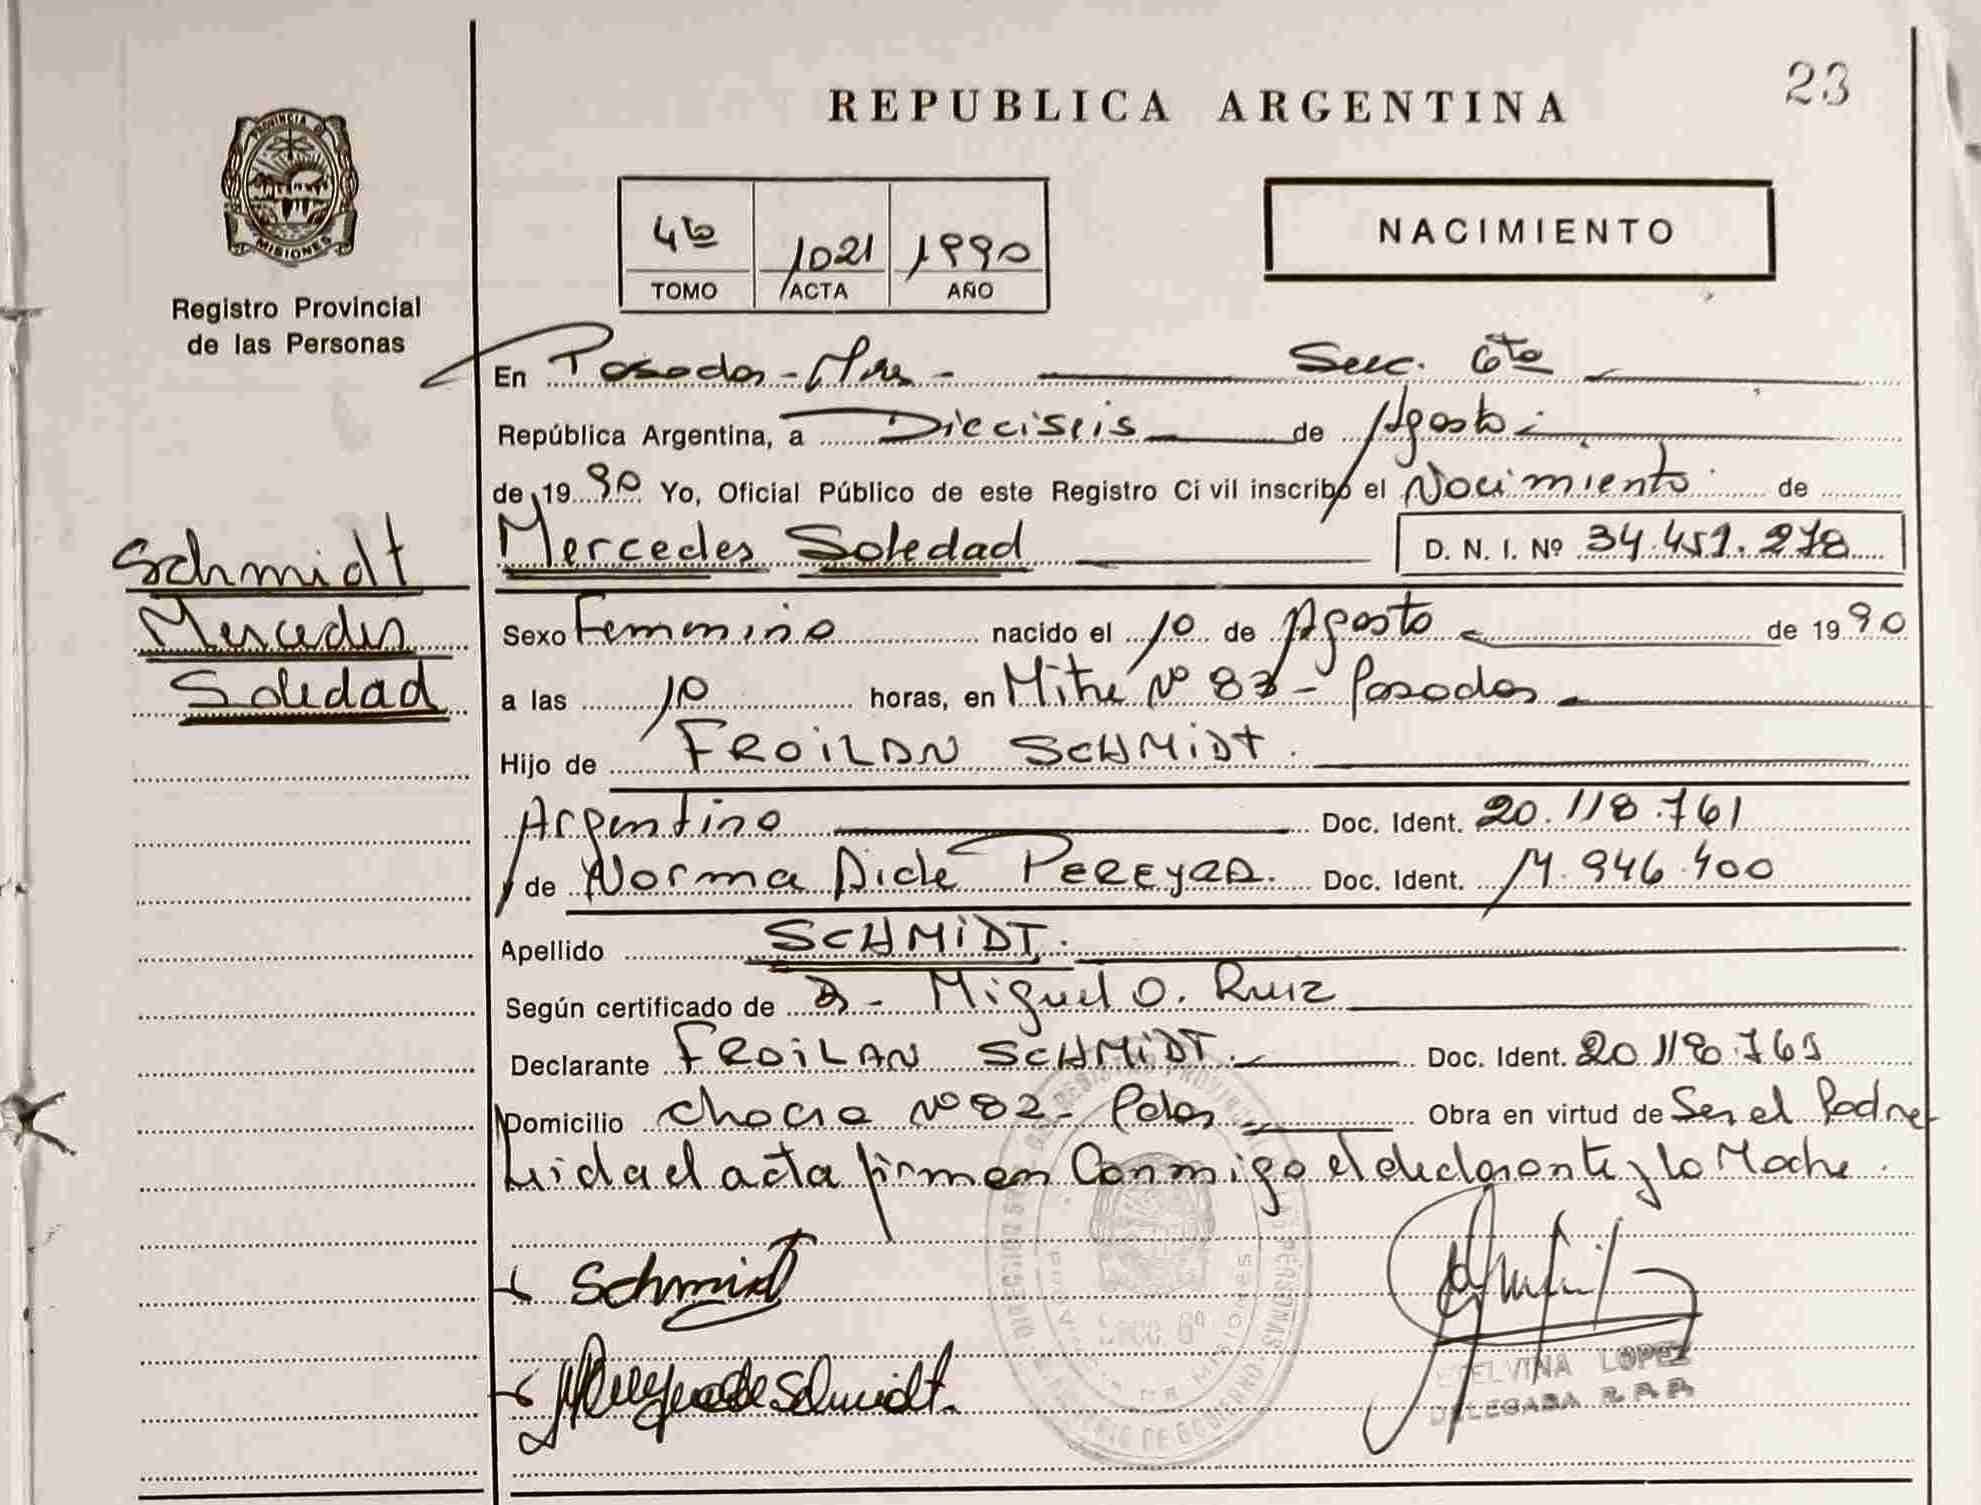 23
REPUBLICA ARGENTINA
PROVINCIA D
MISIONES
Registro Provincial
de las Personas
4to 1021 1990
TOMO ACTA AÑO
NACIMIENTO
En Posadas - Mnes - Secc. 6ta
República Argentina, a Dieciseis de Agosto
de 1990 Yo, Oficial Público de este Registro Civil inscribo el Nacimiento de
Mercedes Soledad D. N. I. Nº 34.451.278
Schmidt
Mercedes
Soledad
Sexo Femenino nacido el 10 de Agosto de 1990
a las 10 horas, en Mitre Nº 83 - Posadas
Hijo de FROILAN SCHMIDT.
Argentino Doc. Ident. 20.118.761
y de Norma Aide PEREYRA. Doc. Ident. 14.946.400
Apellido SCHMIDT.
Según certificado de Dr - Miguel O. Ruiz
Declarante FROILAN SCHMIDT. Doc. Ident. 20.118.761
Domicilio Chacra Nº 82 - Pdas Obra en virtud de Ser el Padre
Leida el acta firman Conmigo el declarante y la Madre.
Schmidt
de Schmidt.
SECC. 6º
PROVINCIA DE MISIONES
ELVINA LOPEZ
DELEGADA R.P.P.